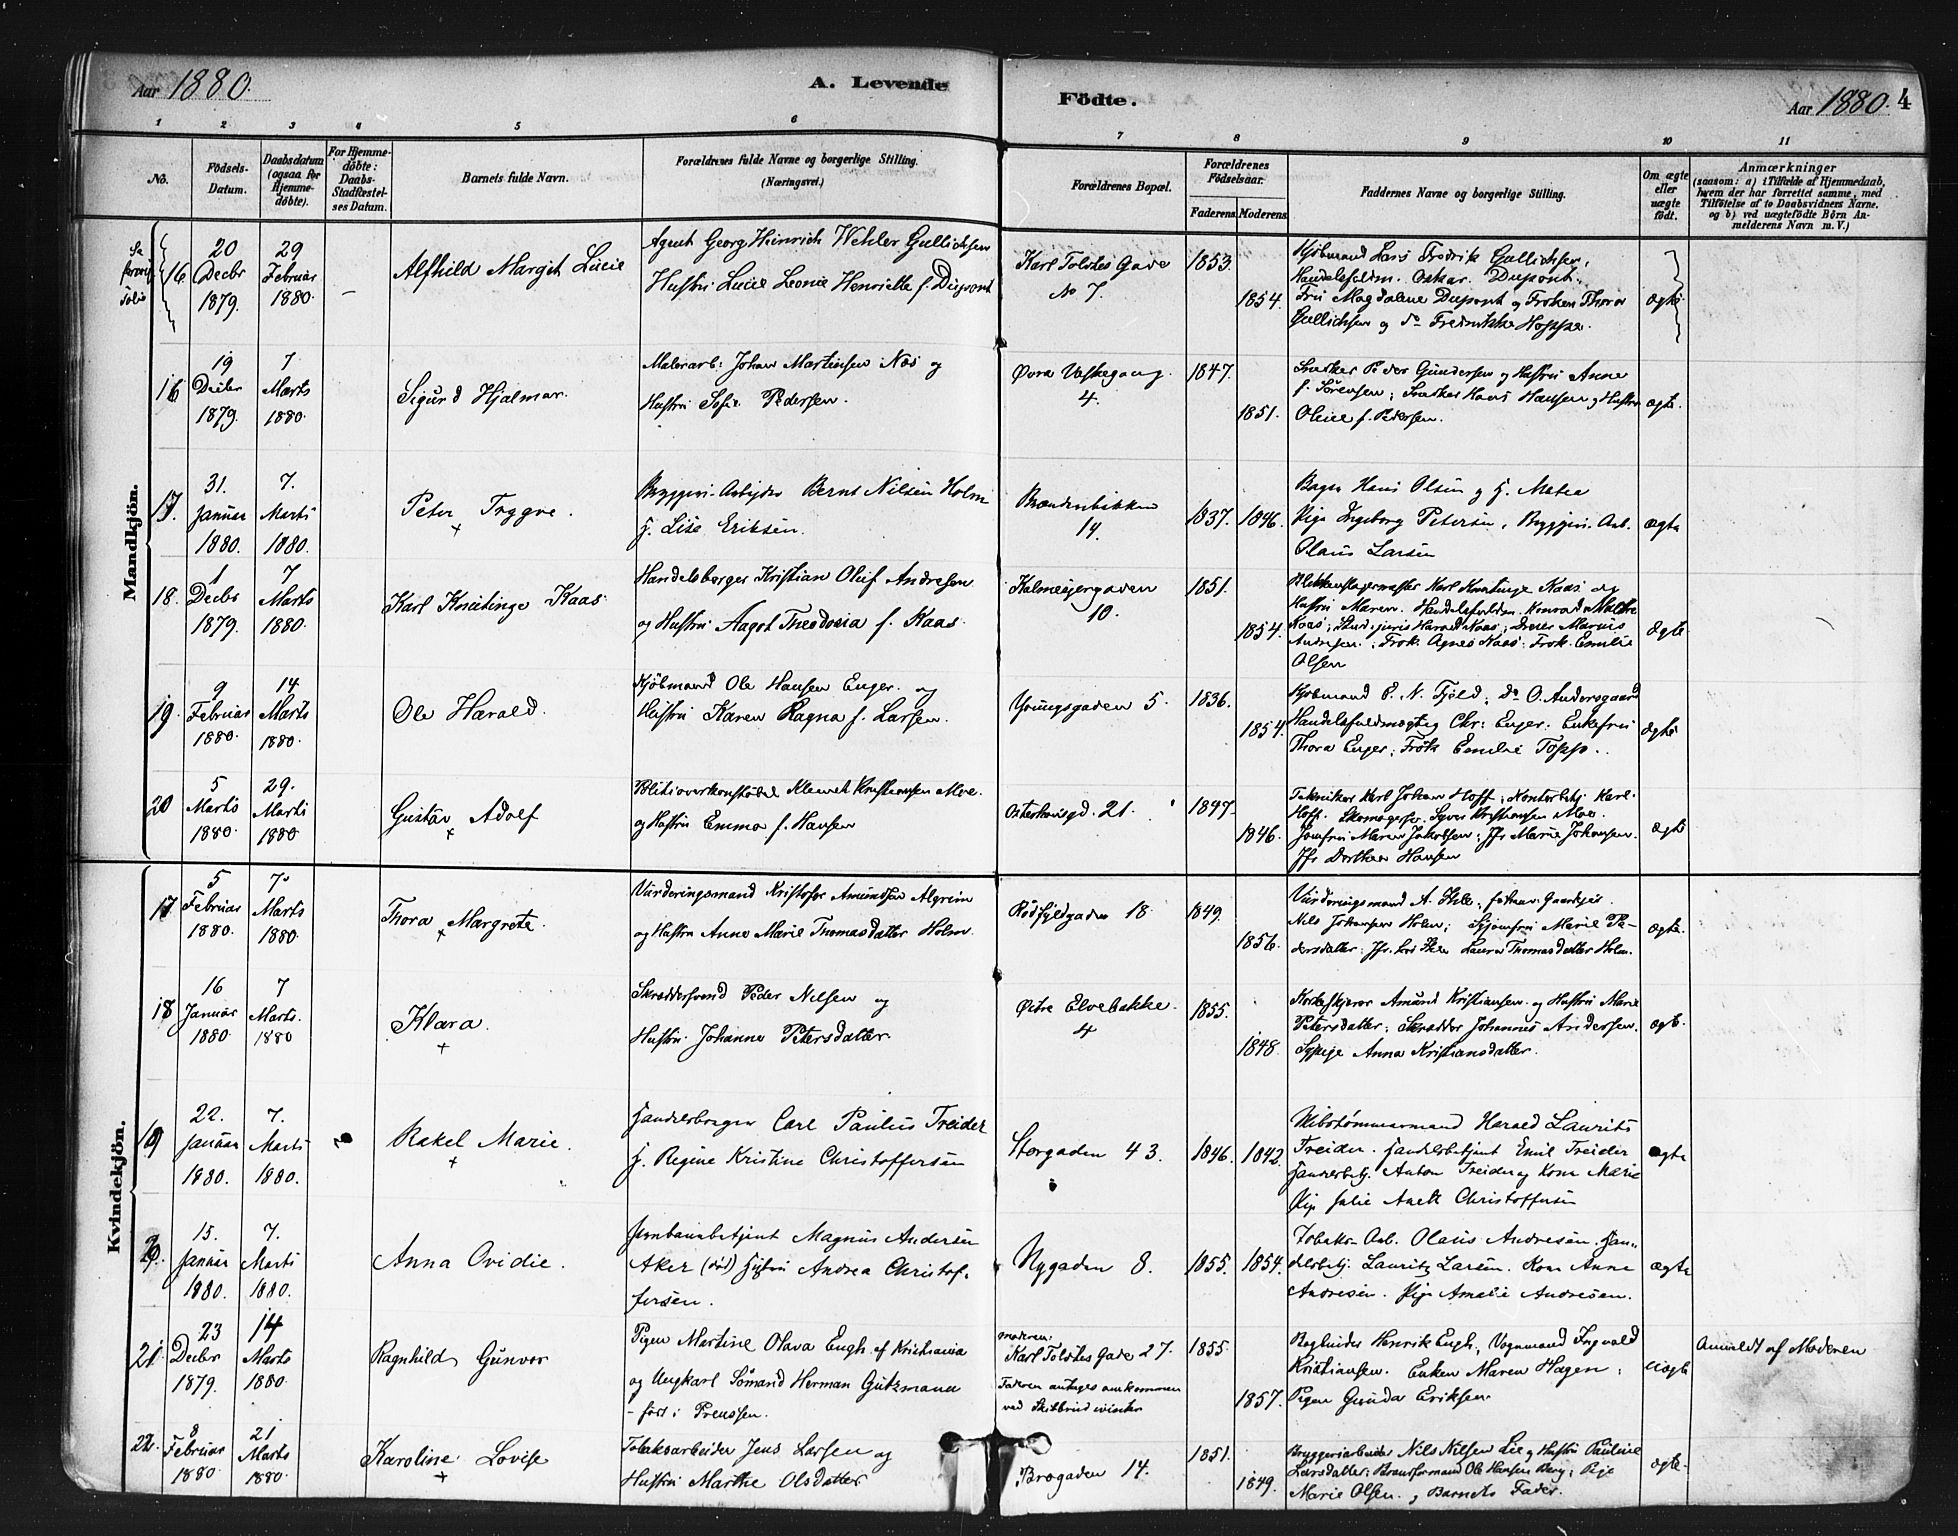 Aar 1880.
A. Levende
Födte.
Aar 1880. 4
1 2 3 4 5 6 7 8 9 10 11
No.
Födsels-
Datum.
Daabsdatum
(ogsaa for
Hjemme-
döbte).
For Hjemme-
döbte:
Daabs-
Stadfæstel-
ses Datum.
Barnets fulde Navn.
Forældrenes fulde Navne og borgerlige Stilling.
(Næringsvei.)
Forældrenes Bopæl.
Forældrenes
Födselsaar.
Faderens. Moderens.
Faddernes Navne og borgerlige Stilling.
Om ægte
eller
uægte
födt.
Anmærkninger
(saasom: a) i Tilfælde af Hjemmedaab,
hvem der har forrettet samme, med
Tilföielse af to Daabsvidners Navne.
og b) ved uægtefödte Börn An-
melderens Navn m. V.)
Mandkjön.
16
20
Decbr
1879.
29
Februar
1880.
Alfhild Margit Lucie
Agent Georg Heinrich Wehler Gullichsen
Hustru Lucie Leonie Henriette f. Dupont
Karl Tolstes Gade
No 7.
1853.
1854.
Kjöbmand Lars Fredrik Gullichsen,
Handelsfuldm. Oskar Dupont,
Fru Magdalene Dupont og Fröken Thora
Gullichsen og do Fredrikke Hoppe.
ægte
16
19
Decbr
1879.
7
Marts
1880.
Sigurd Hjalmar.
Malerarb: Johan Martinsen Næs og
Hustru Sofie Pedersen.
Övra Vaskegang.
4.
1847.
1851.
Snedker Peder Gundersen og Hustru Anne
f. Sörensen; Snedker Hans Hansen og Hustru
Oline f. Pedersen.
ægte.
17.
31.
Januar
1880.
7.
Marts
1880.
Peter Tryggve.
Bryggeri-Arbejder Bernt Nilsen Holm
H. Lise Eriksen.
Brændenbakken
14.
1837. 1846.
Bager Hans Olsen og H. Matea
Pige Ingeborg Petersen, Bryggeri-Arb.
Olaus Larsen
ægte
18.
1
Decbr
1879.
7
Marts
1880.
Karl Knatinge Kaas.
Handelsborger Kristian Oluf Andresen
og Hustru Aagot Theodosia f. Kaas.
Kalmeiergaden
10.
1851.
1854.
Blikkenslagermester Karl Knatinge Kaas og
Hustru Maren. Handelsfuldm. Konrad
Kaas; Stud. juris Harald Kaas; Marius
Andresen; Frök. Agnes Kaas; Frök. Emilie
Olsen
Ægte
19.
9
Februar
1880.
14
Marts
1880.
Ole Harald.
Kjöbmand Ole Hansen Enger. og
Hustru Karen Ragna f. Larsen.
Youngsgaden 5.
1836.
1854.
Kjöbmand P. N. Fjeld; do O. Andersgaard
Handelsfuldmægtig Chr: Enger. Enkefru
Thora Enger; Frök Emilie Topp.
ægte
20
5
Marts
1880.
29.
Marts
1880
Gustav Adolf
Politioverkonstabel Klemet Kristiansen Moe.
og Hustru Emma f. Hansen
Osterhausgd. 21.
1847.
1846.
Tekniker Karl Johan Hoff; Kontorbetj. Karl.
Hoff. Skomagersv. Syver Kristiansen Moe.
Jomfru Maren Jakobsen; Jfr Marie Johansen.
Jfr Dorthea Hansen
ægte
Kvindekjön.
17
5
Februar
1880.
7.
Marts
1880.
Thora Margrete.
Vurderingsmand Kristofer Amundsen Algrim
og Hustru Anne Marie Thomasdatter Holm.
Rödfyldgaden 18.
1849.
1856.
Vurderingsmand A. Gaardejer.
Nils Johansen Holm; Syjomfru Marie Pe-
dersdatter; Laura Thomasdatter Holm.
ægte.
18
16
Januar
1880.
7
Marts.
1880
Klara.
Skræddersvend Peder Nilsen og
Hustru Johanne Petersdatter.
Östre Elvebakke.
4
1855.
1848.
Korkeskjærer Amund Kristiansen og Hustru Marie
Petersdatter; Skrædder Johannes Andersen.
Sypige Anna Kristiansdatter.
ægte.
19
22.
Januar
1880.
7.
Marts
1880.
Rakel Marie.
Handelsborger Carl Paulus Treider
H. Regine Kristine Christoffersen
Storgaden 43.
1846. 1842.
Mibstömmermand Harald Laurits
Treider. Handelsbetjent Emil Treider
Handelsbetj. Anton Treider og Kone Marie
Pige Julie Anett Christoffersen
ægte
20.
15.
Januar
1880.
7.
Marts
1880.
Anna Ovidie.
Jernbanebetjent Magnus Andersen
Aker (död) Hustru Andrea Christof-
fersen.
Nygaden 8.
1855. 1854.
Tobaks-Arb. Olaus Andresen. Han-
delsbetj. Lauritz Larsen. Kone Anne
Andresen. Pige Amalie Andresen.
ægte
21.
23
Decbr
1879.
14
Marts
1880.
Ragnhild Gunvor
Pigen Martine Olava Engh af Kristiania
og Ungkarl Sömand Herman Gutzmann
- født i Preussen.
Moderen:
Karl Tolstes Gade 27.
Faderen antages omkommen
ved Skibbrud ivinter
1855.
1857.
Bogbinder Henrik Engh, Vognmand Ingvald
Kristiansen. Enken Maren Hagen;
Pigen Gunda Eriksen.
uægte
Anmeldt af Moderen
22.
8
Februar
1880.
21
Marts
1880.
Karoline Lovise
Tobaksarbeider Jens Larsen og
Hustru Marthe Olsdatter
Brogaden 14.
1851.
1849.
Bryggeriarbeider Nils Nilsen Lie og Hustru Pauline
Larsdatter; Brandformand Ole Hansen Berg; Pige
Marie Olsen. og Barnets Fader.
ægte.